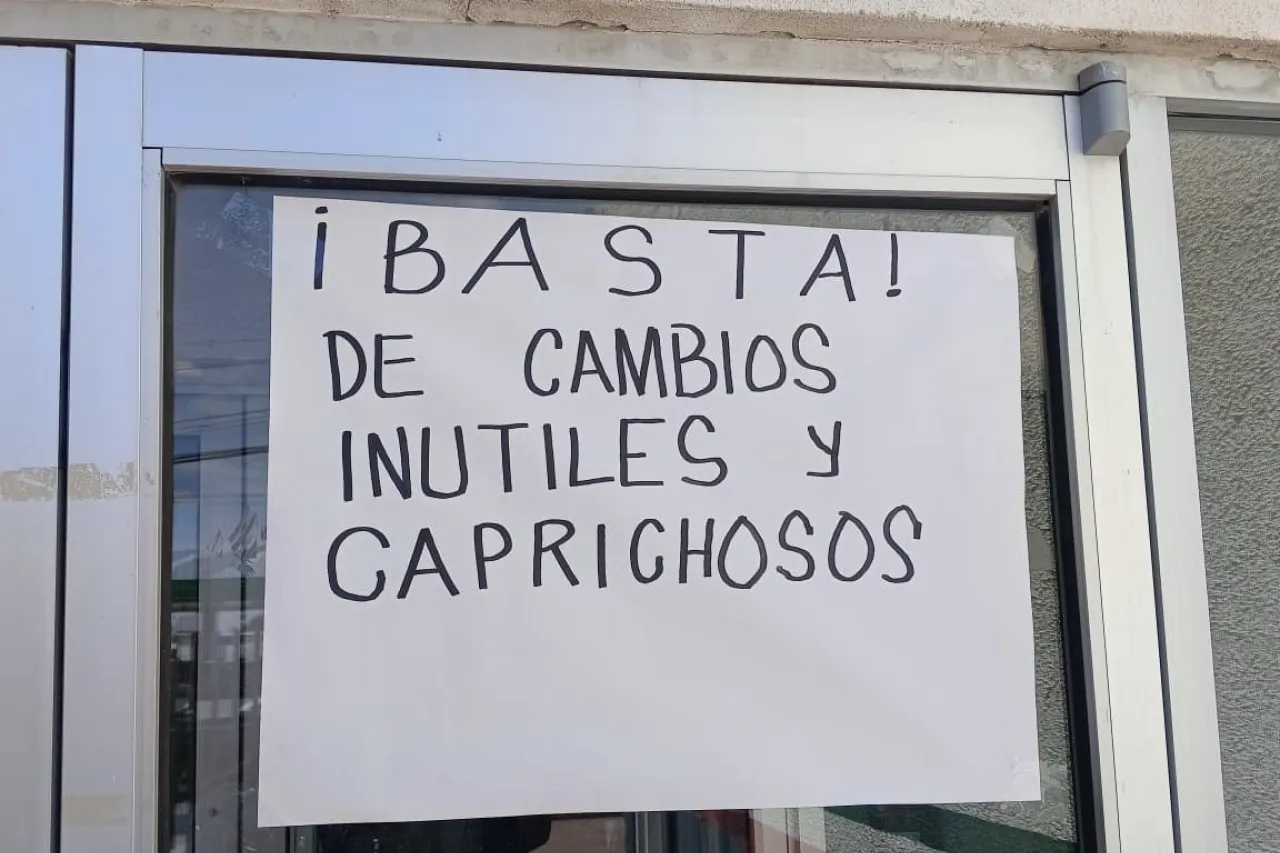 ¡BASTA!
DE CAMBIOS
INUTILES Y
CAPRICHOSOS